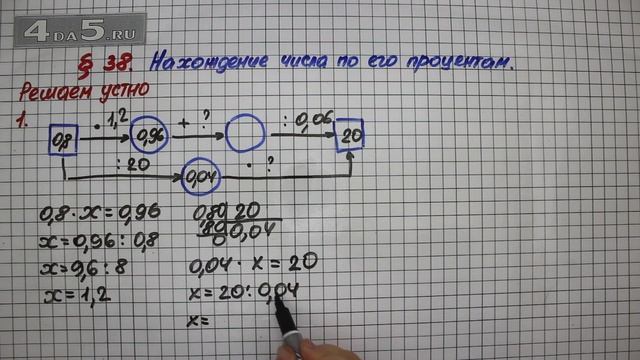 4DA5.RU
§ 38. Нахождение числа по его процентам.
Решаем устно
1.
· 1,2 + ? : 0,06
0,8 0,96 20
: 20 0,04 · ?
0,8 · x = 0,96
x = 0,96 : 0,8
x = 9,6 : 8
x = 1,2
0,80 20
80 0,04
0
0,04 · x = 20
x = 20 : 0,04
x =